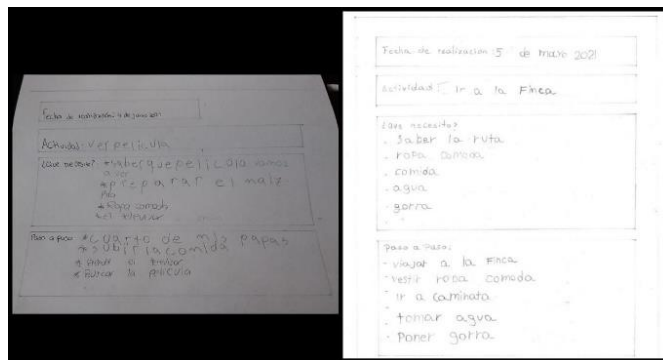 Fecha de realización: 4 de junio 2021
Actividad: ver pelicula
¿Que necesito? *saber que pelicula vamos
a ver
*preparar el maiz
pira
*Ropa comoda
*el televisor
Paso a paso *cuarto de mis papas
*subir la comida
* Prender el televisor
* Buscar la pelicula
Fecha de realización 5 de mayo 2021
Actividad: Ir a la Finca
¿Que necesito?
. Saber la ruta
. ropa comoda
. comida
. agua
. gorra
Paso a Paso:
- viajar a la Finca
- vestir ropa comoda
. Ir a caminata
. tomar agua
. Poner gorra